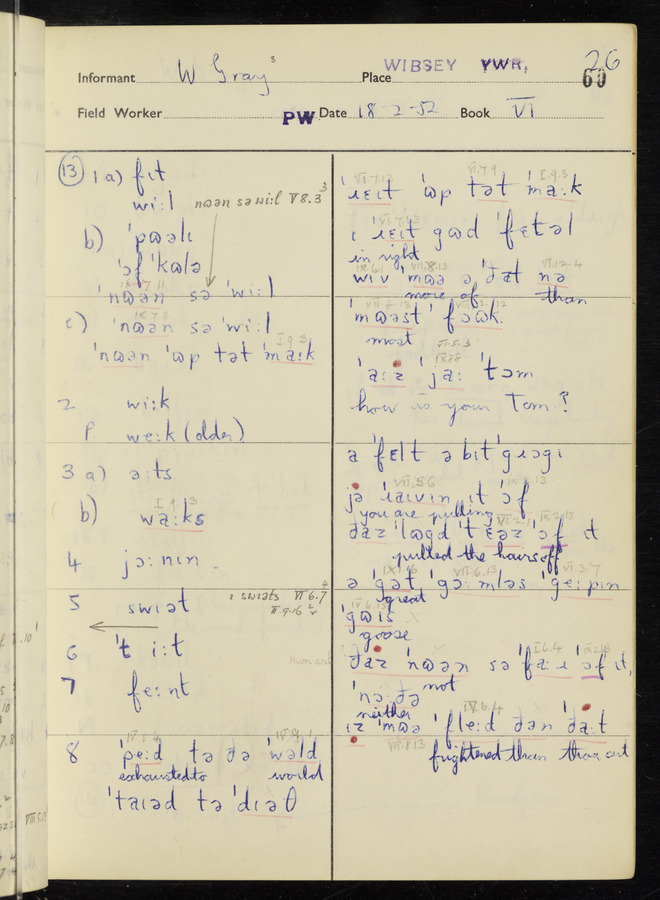 Informant W Gray Place WIBSEY YWR, 26
60
Field Worker PW Date 18-2-52 Book VI
13 1 a) fɪt
wi:l nɷən sə wi:l V 8.3
b) ˈpɷəlɪ
ˈɔf ˈkɷlə
ˈnɷən sə ˈwi:l
c) ˈnɷən sə ˈwi:l
ˈnɷən ˈɷp tət ˈma:k
2 wi:k
P we:k (older)
3 a) ə:ts
b) wa:ks
I 9 3
4 jɔ:nɪn
5 swɪət
ɪ swɪəts VI 6.7
6 ˈt i:t
7 fe:nt
8 ˈpe:d tə ðə ˈwəld
exhausted to world
ˈtaɪəd tə ˈdɪəθ
ˈɹɛɪt ˈɷp tət ˈma:k
ɪ ˈɹɛɪt gɷd ˈfɛtəl
in right
wɪv ˈmɷə ə ˈðat nə
more of than
ˈmɷəst ˈfɔɷk
most
ˈa: z ˈja: ˈtɔm
how is your Tom?
a ˈfɛlt ə bɪt ˈgɹɔgɪ
jə ˈɹaɪvɪn ɪt ˈɔf
you are pulling
ðaz ˈlɷgd ˈt ɛəz ˈɔf ɪt
pulled the hairs off
ə ˈgət ˈgɔ:mləs ˈge:pɪn
great
ˈgɷɪs
goose
ðaz ˈnɷən sə ˈfa:ɹ ˈɔf ɪt,
not
ˈnə:ðə
neither
ɪz ˈmɷə ˈfle:d ðən ˈða:t
frightened than thou art